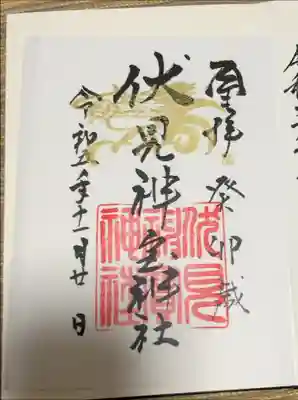 奉拝 癸卯歳
伏見神宝神社
令和五年十一月廿日
伏見
神宝
神社